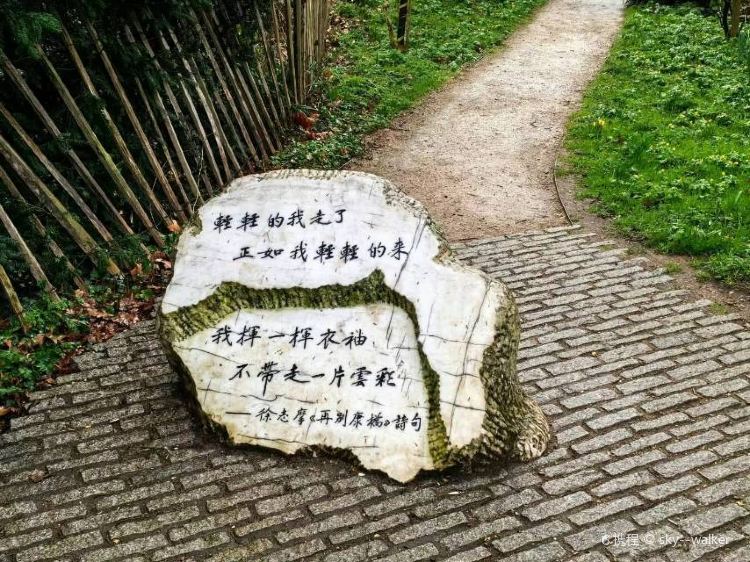 輕輕的我走了
正如我輕輕的来
我揮一揮衣袖
不帶走一片雲彩
——徐志摩《再別康橋》詩句
携程 © sky--walker